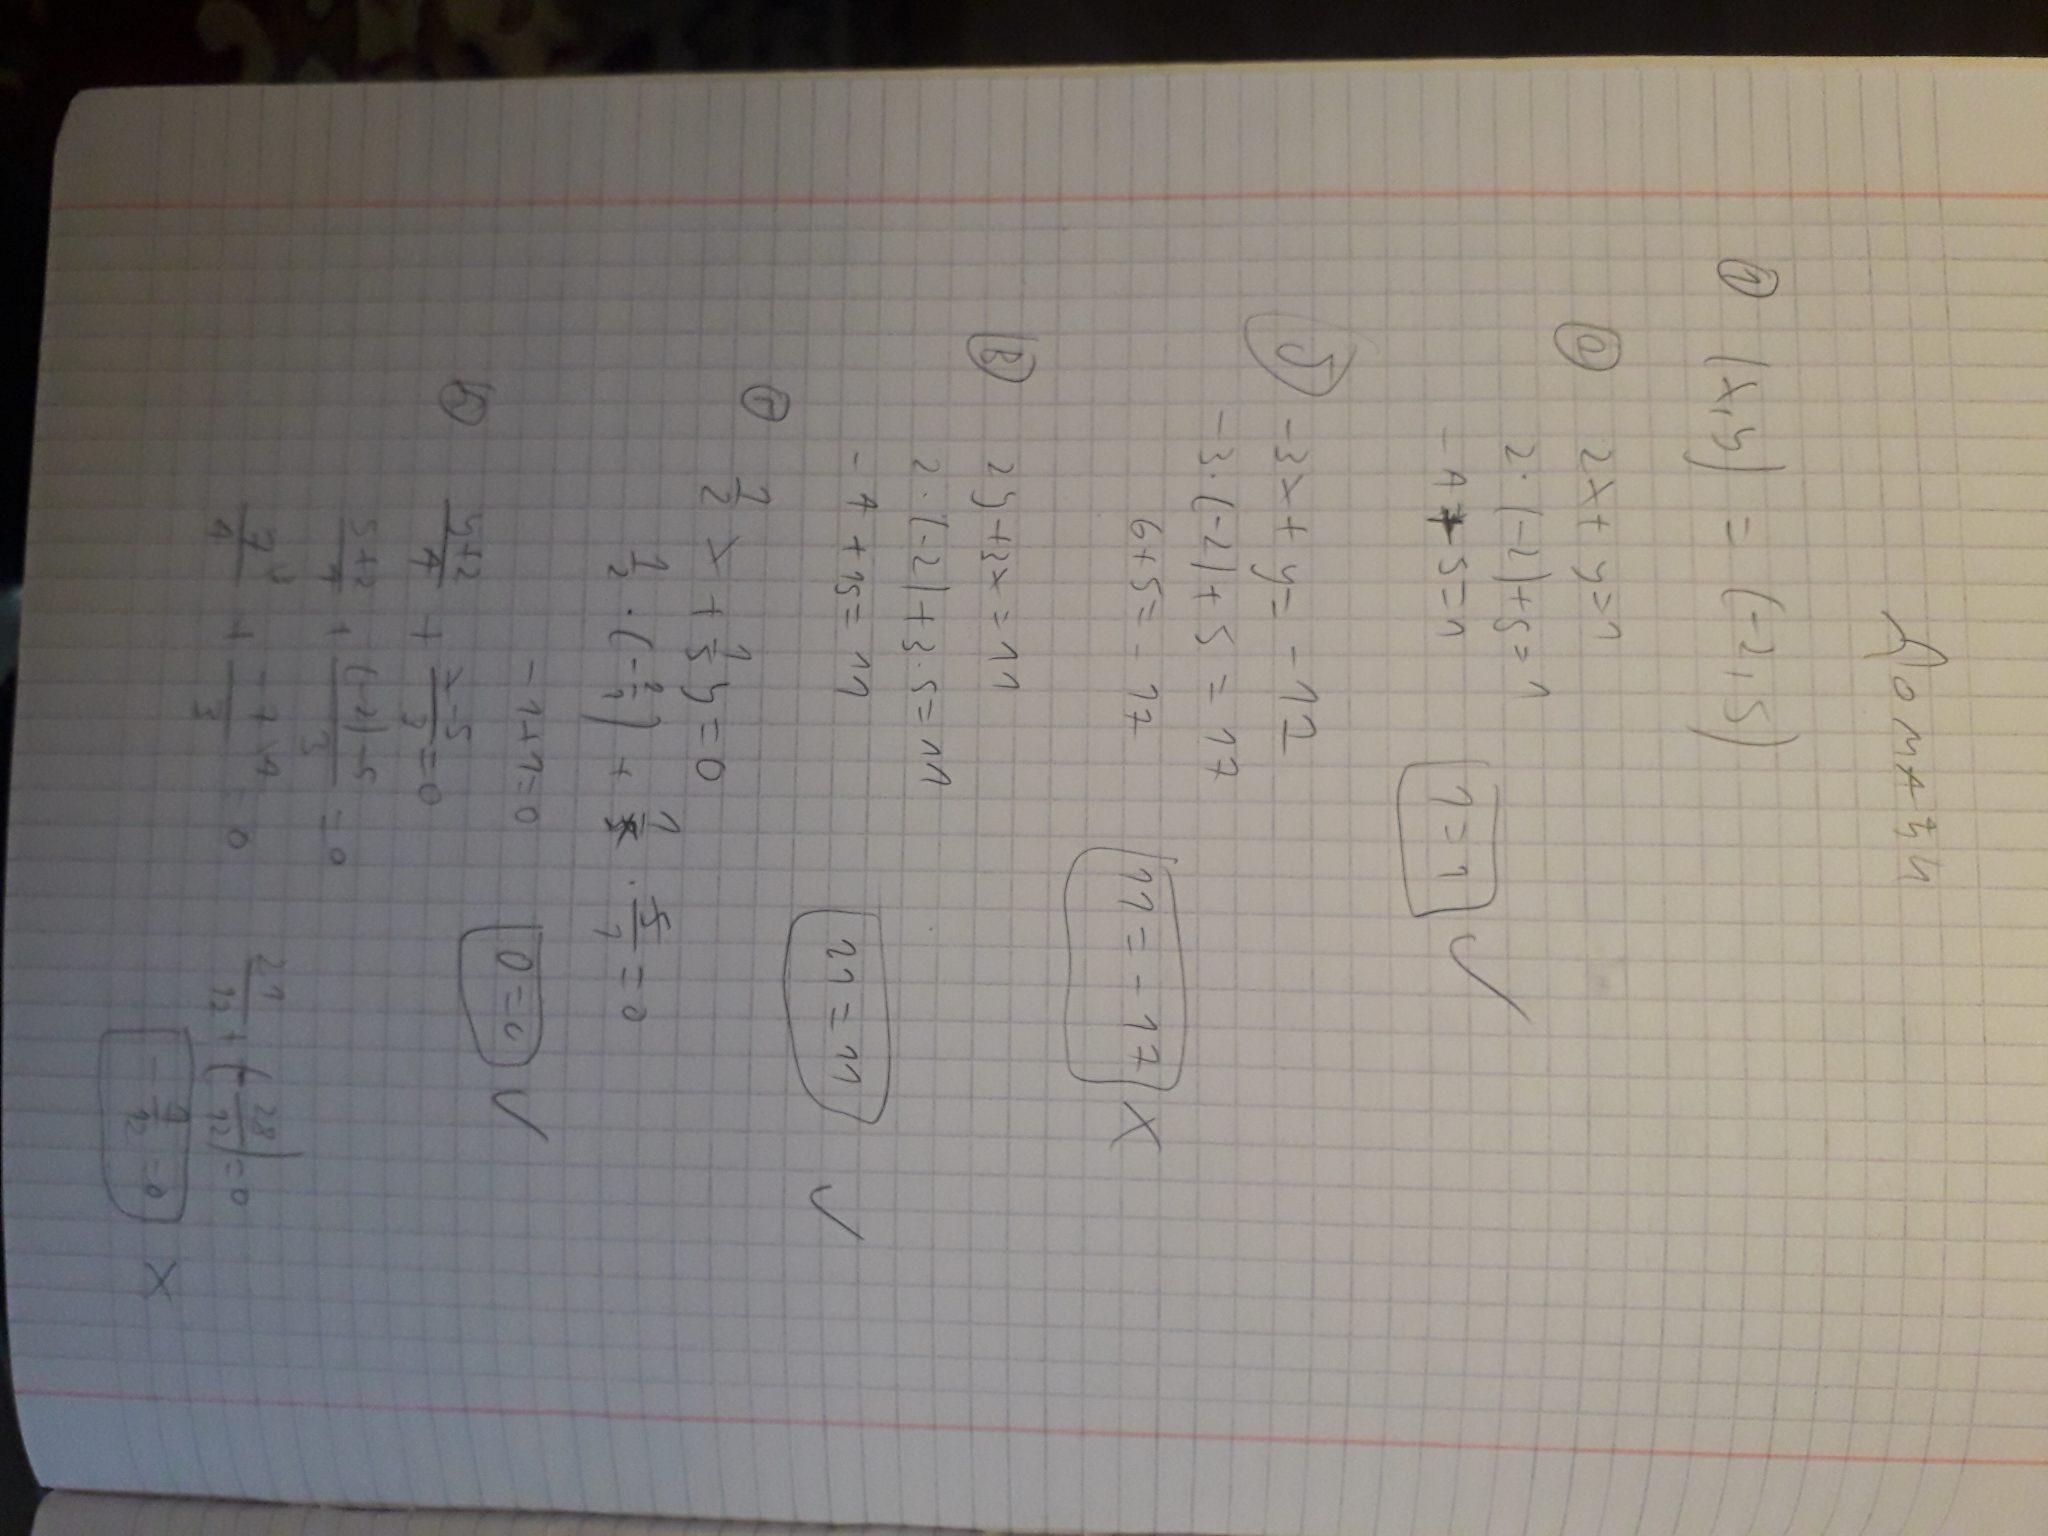 Domaћи
① (x, y) = (-2, 5)
ⓐ 2x + y = 1
2·(-2)+5=1
-4+5=1 1=1 ✓
б -3x + y = -12
-3·(-2)+5=17
6+5=-17 11=-17 X
в 2y+3x=11
2·(-2)+3·5=11
-4+15=11 11=11 ✓
г 1/2 x + 1/5 y = 0
1/2 · (-2/1) + 1/5 · 5/1 = 0
-1+1=0 0=0 ✓
ђ y+2/4 + x-5/3 = 0
5+2/4 + (-2)-5/3 = 0
7/4 + -7/3 = 0 21/12 + (-28/12) = 0
-7/12 = 0 X